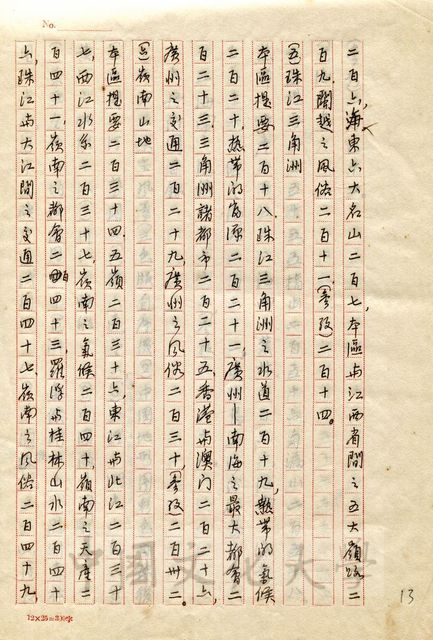 No.
二百六,海東六大名山二百七,本區與江西省間之五大嶺路二
百九,閩越之風俗二百十一,(參攷)二百十四。
(五)珠江三角洲
本區提要二百十八,珠江三角洲之水道二百十九,熱帶的氣候
二百二十,熱帶的資源二百二十一,廣州—南海之最大都會二
百二十三,三角洲諸都市二百二十五,香港與澳門二百二十六,
廣州之交通二百二十九,廣州之風俗二百三十,(參攷)二百卅二。
(六)嶺南山地
本區提要二百三十四,五嶺二百三十六,東江與北江二百三十
七,西江水系二百三十七,嶺南之氣候二百四十,嶺南之天產二
百四十一,嶺南之都會二百四十三,羅浮與桂林山水二百四十
六,珠江與大江間之交通二百四十七,嶺南之風俗二百四十九,
13
中國文化大學